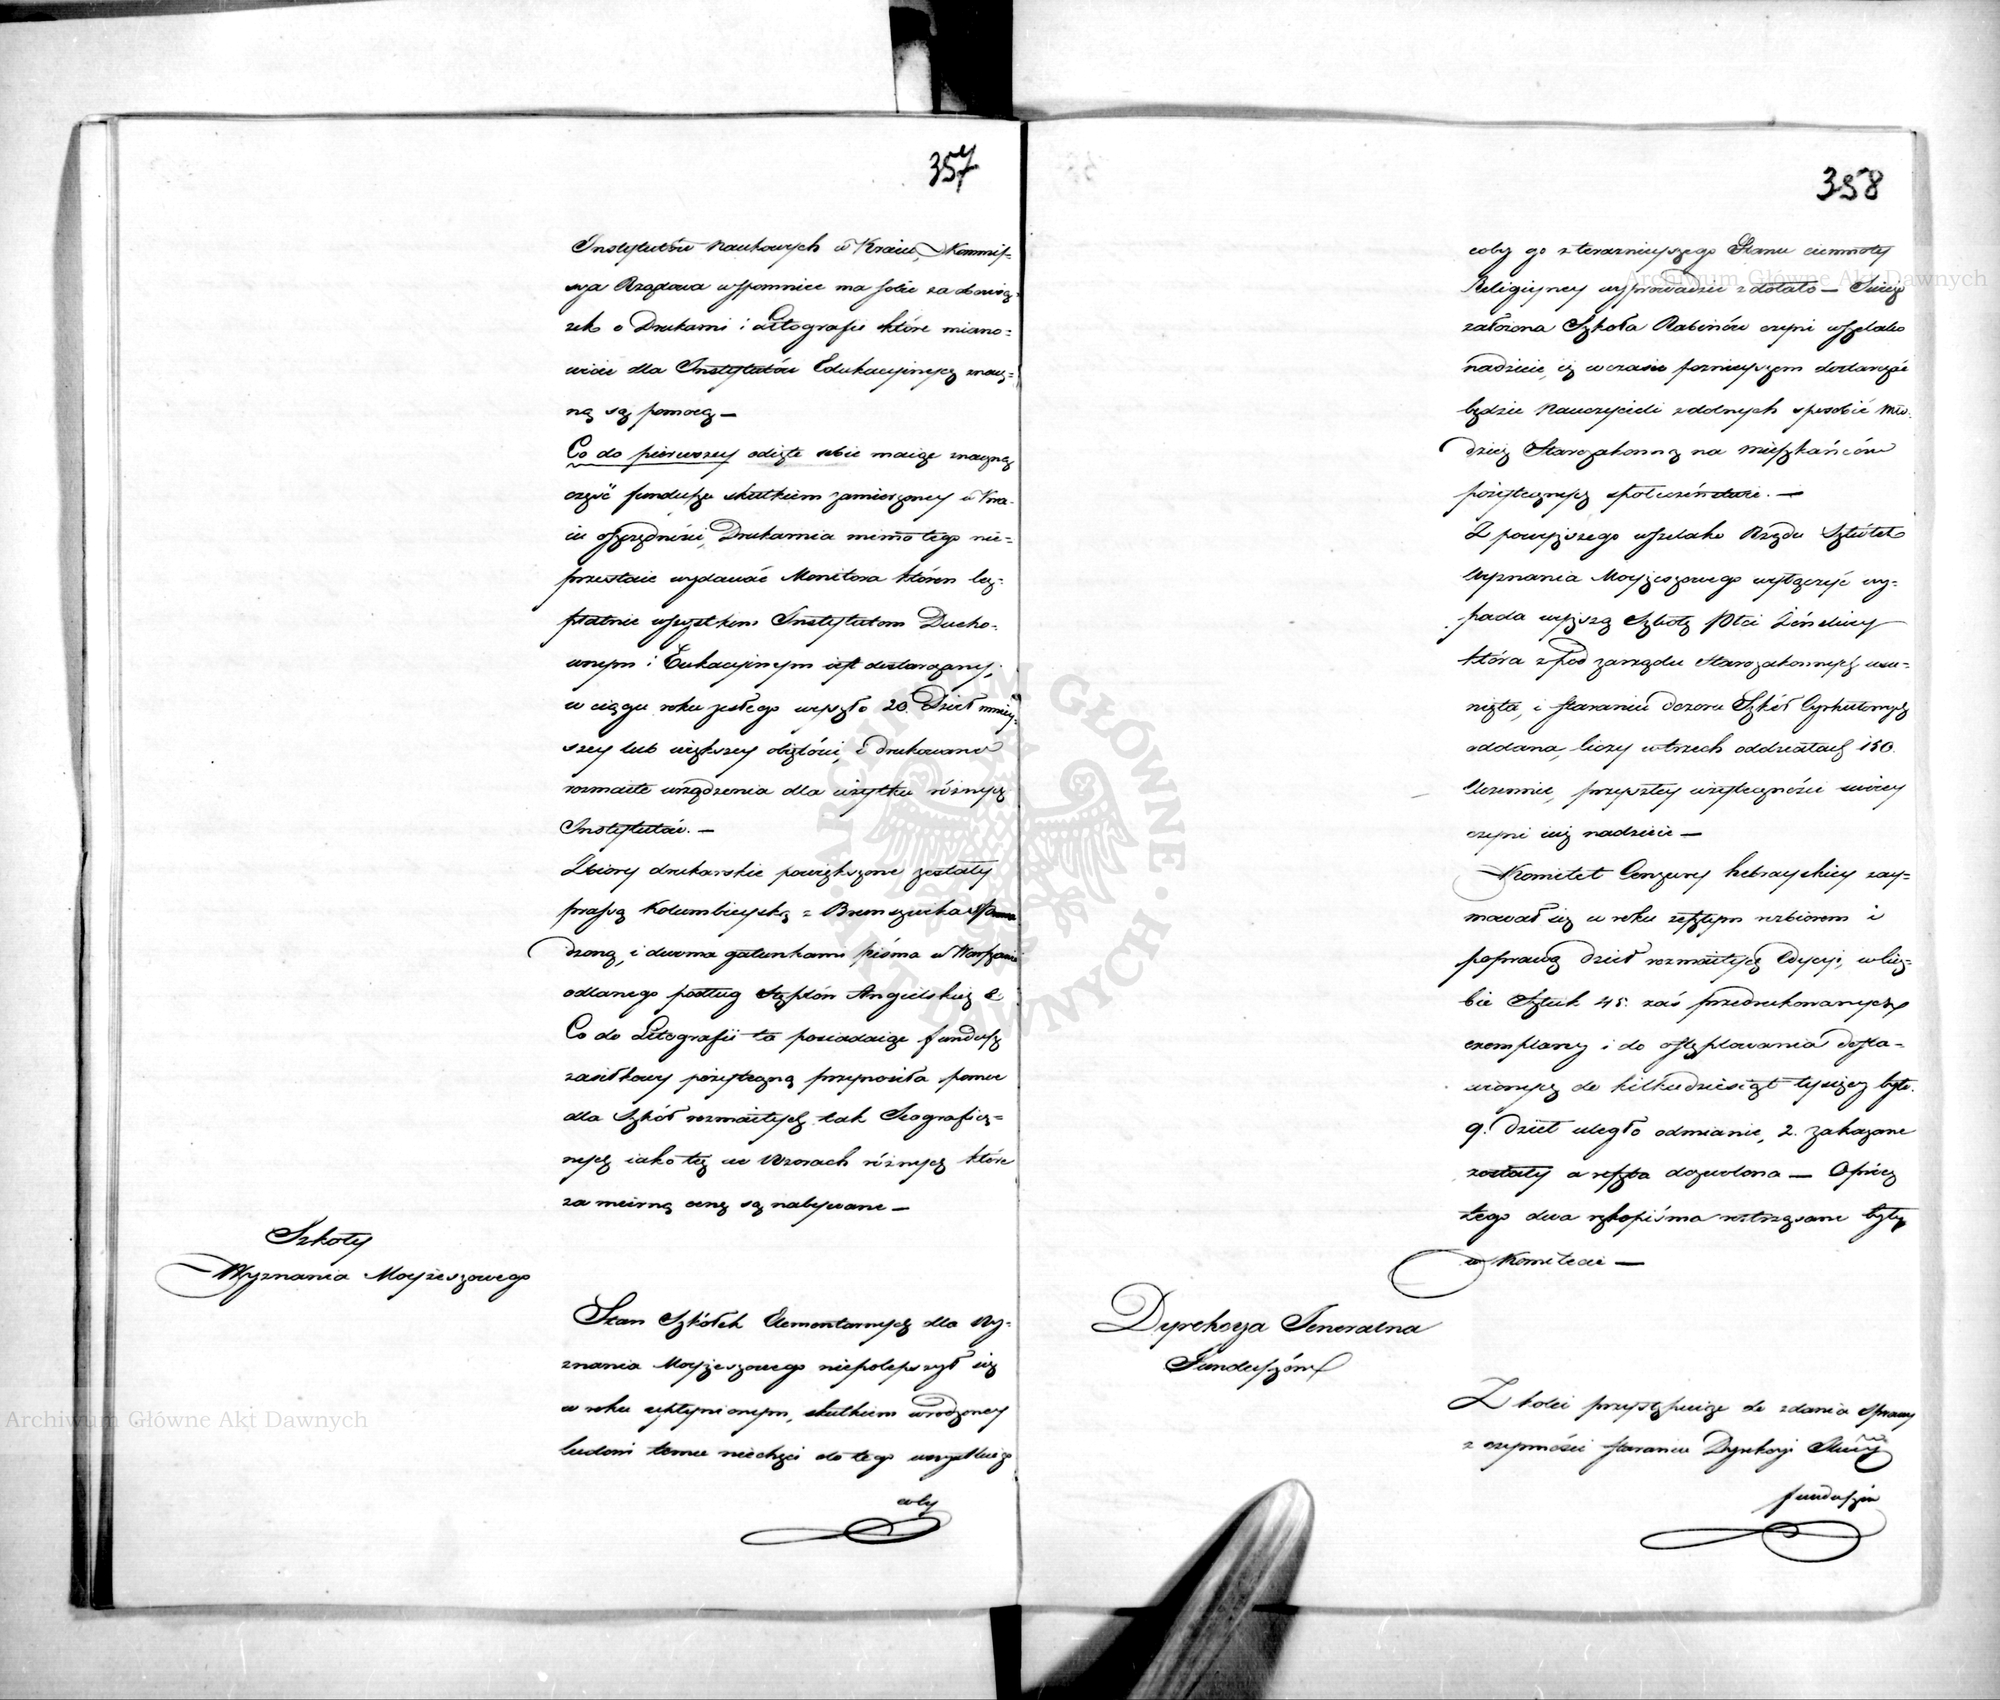 357
Instytutów Naukowych w Kraiu, Kommis-
sya Rządowa wspomnieć ma sobie za obowią-
zek o Drukarni i Litografii które miano-
wicie dla Instytutów Edukacyinych znacz-
ną są pomocą —
Co do pierwszey odięte sobie maiąc znaczną
część funduszu skutkiem zamierzoney w Kra-
iu oszczędności, Drukarnia mimo tego nie-
przestaie wydawać Monitora któren bez-
płatnie wszystkim Instytutom Ducho-
wnym i Eukacyinym iest dostarczany,
w ciągu roku zeszłego wyszło 20. Dzieł mniey-
szey lub większey obiętości, i drukowano
rozmaite urządzenia dla użytku różnych
Instytutów. —
Zbiory drukarskie powiększone zostały
prassą Kolumbieyską z Brunszwika sprowa-
dzoną, i dwoma gatunkami pisma w Warszawie
odlanego podług Sztplów Angielskich &
Co do Litografii ta posiadaiąc fundusz
zasiłkowy pożyteczną przynosiła pomoc
dla Szkół rozmaitych tak Geograficz-
nych iako też we Wzorach różnych które
za mierną cenę są nabywane —
Szkoły
Wyznania Moyżeszowego
Stan Szkółek Elementarnych dla Wy-
znania Moyżeszowego niepolepszył się
w roku upłynionym, skutkiem wrodzoney
ludowi temu niechęci do tego wszystkiego
coby
358
coby go z teraznieyszego Stanu ciemnoty
Religiyney wyprowadzić zdołało — Świeżo
założona Szkoła Rabinów czyni wszelako
nadzieię, iż w czasie poznieyszem dostarczać
będzie Nauczycieli zdolnych sposobić Mło-
dzież Starozakonną na mieszkańców
pożytecznych społeczeństwu. —
Z powyższego wszelako Rzędu Szkółek
Wyznania Moyżeszowego wyłączyć wy-
pada wyższą Szkołę Płci Żeńskiey
która z pod zarządu Starozakonnych usu-
nięta, i staraniu dozoru Szkół Cyrkułowych
oddana, liczy w trzech oddziałach 150.
Uczennic, przyszłey użyteczności swoiey
czyni iuż nadzieię —
Komitet Cenzury hebrayskiey zay-
mował się w roku zeszłym rozbiorem i
poprawą dzieł rozmaitych Edycyi, w licz-
bie Sztuk 45. zaś przedrukowanych
exemplarzy i do ostęplowania dosta-
wionych do kilkudziesiąt tysięcy było.
9. Dzieł uległo odmianie, 2. zakazane
zostały a reszta dozwolona — Oprócz
tego dwa rękopisma roztrząsane były
w Komitecie —
Dyrekcya Jeneralna
Funduszów
Z kolei przystępuiąc do zdania sprawy
z czynności staraniu Dyrekcyi
funduszów
Archiwum Główne Akt Dawnych
Archiwum Główne Akt Dawnych
ARCHIWUM GŁÓWNE · AKT DAWNYCH ·